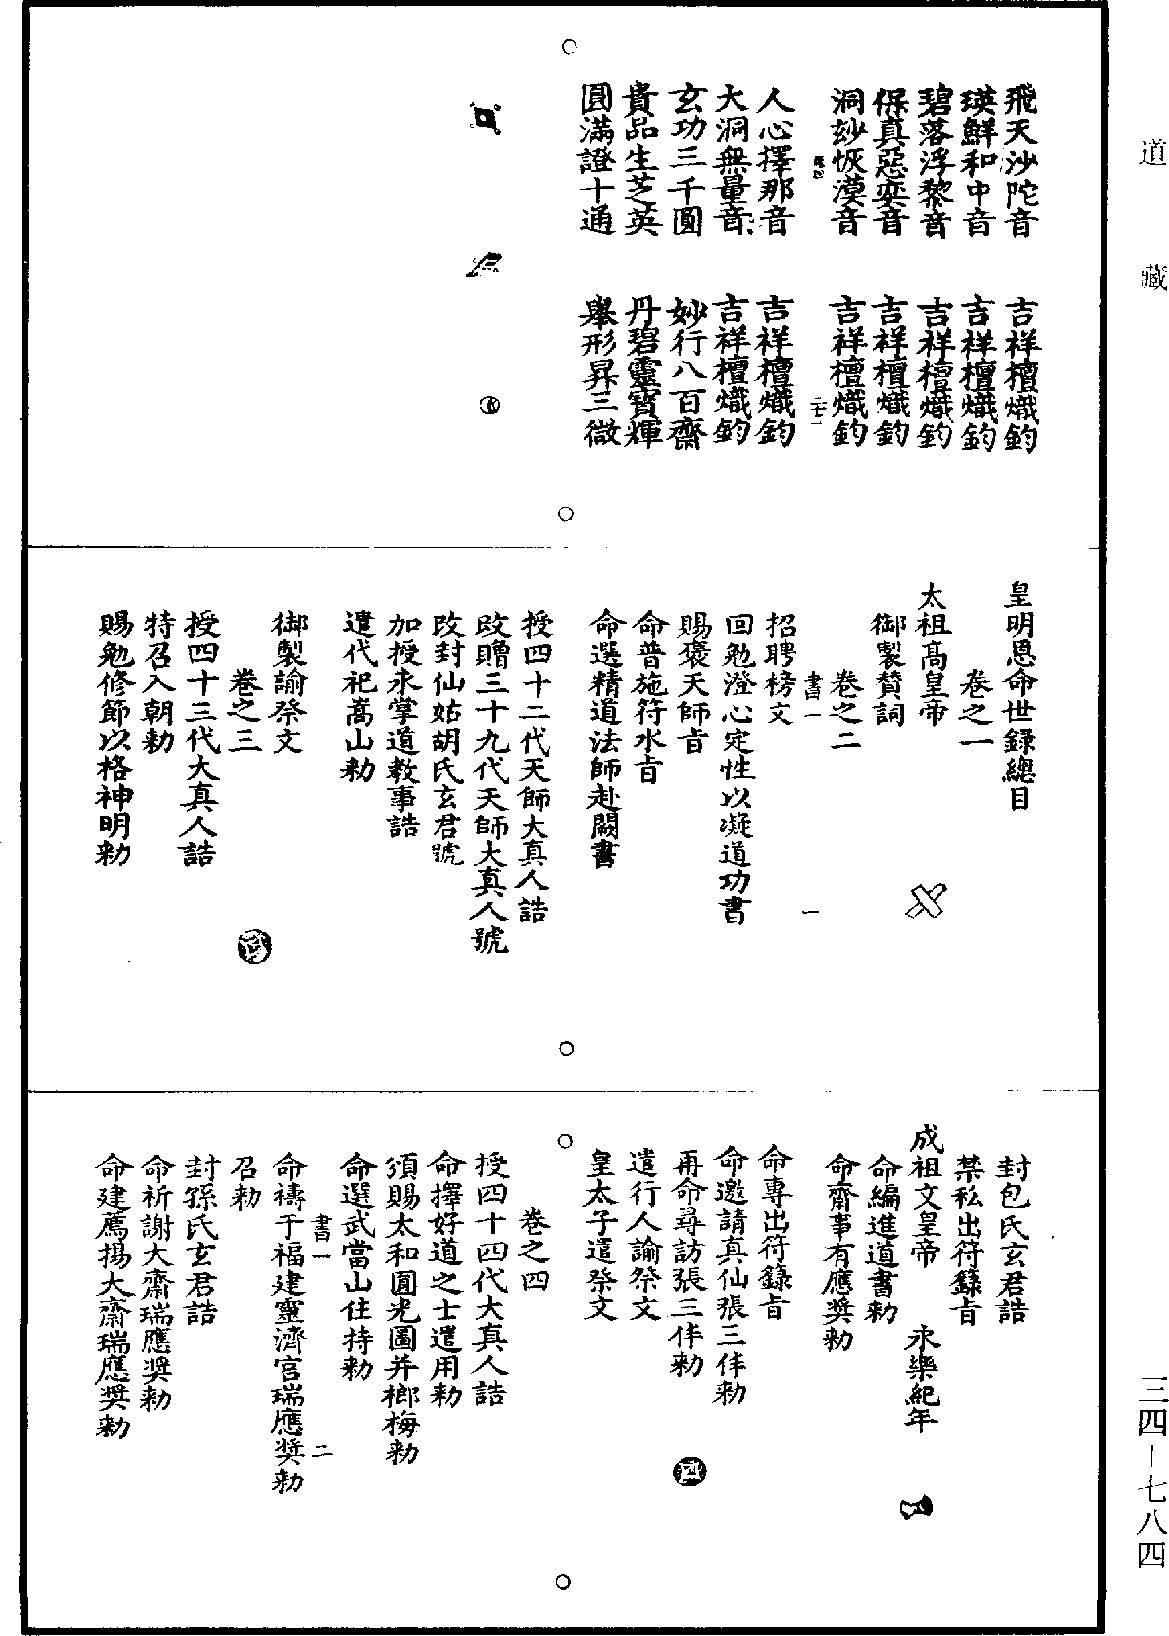 道藏
飛天沙陀音　吉祥檀熾鈞
瑛鮮和中音　吉祥檀熾鈞
碧落浮黎音　吉祥檀熾鈞
保真惡奕音　吉祥檀熾鈞
洞妙恢漠音　吉祥檀熾鈞
人心擇那音　吉祥檀熾鈞
大洞無量音　吉祥檀熾鈞
玄功三千圓　妙行八百齋
貴品生芝英　丹碧靈寶輝
圓滿證十通　舉形昇三微
皇明恩命世録總目
卷之一
太祖髙皇帝
御製賛詞
卷之二
書一　一
招聘榜文
回勉澄心定性以凝道功書
賜褒天師㫖
命普施符水㫖
命選精道法師赴闕書
授四十二代天師大真人誥
改贈三十九代天師大真人號
改封仙姑胡氏玄君號
加授永掌道教事誥
遣代祀嵩山勑
御製諭祭文
卷之三
授四十三代大真人誥
特召入朝勑
賜勉修節以格神明勑
封包氏玄君誥
禁私出符籙㫖
成祖文皇帝　永樂紀年
命編進道書勑
命齋事有應奬勑
命專出符籙㫖
命邀請真仙張三仹勑
再命尋訪張三仹勑
遣行人諭祭文
皇太子遣祭文
卷之四
授四十四代大真人誥
命擇好道之士遣用勑
頒賜太和圓光圖并榔梅勑
命選武當山住持勑
書一　二
命禱于福建靈濟宫瑞應奬勑
召勑
封孫氏玄君誥
命祈謝大齋瑞應奬勑
命建薦揚大齋瑞應奬勑
三四—七八四